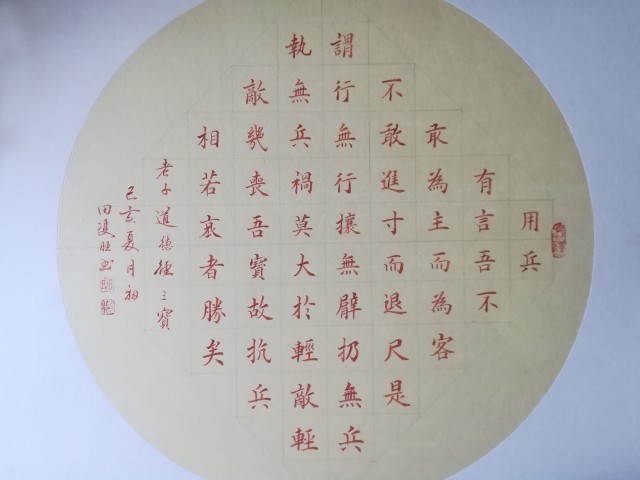 用兵
有言吾不
敢為主而為客
不敢進寸而退尺是
謂行無行攘無臂扔無兵
執無兵禍莫大於輕敵輕
敵幾喪吾寶故抗兵
相若哀者勝矣
老子道德經三寶
己亥夏月初
田旺书